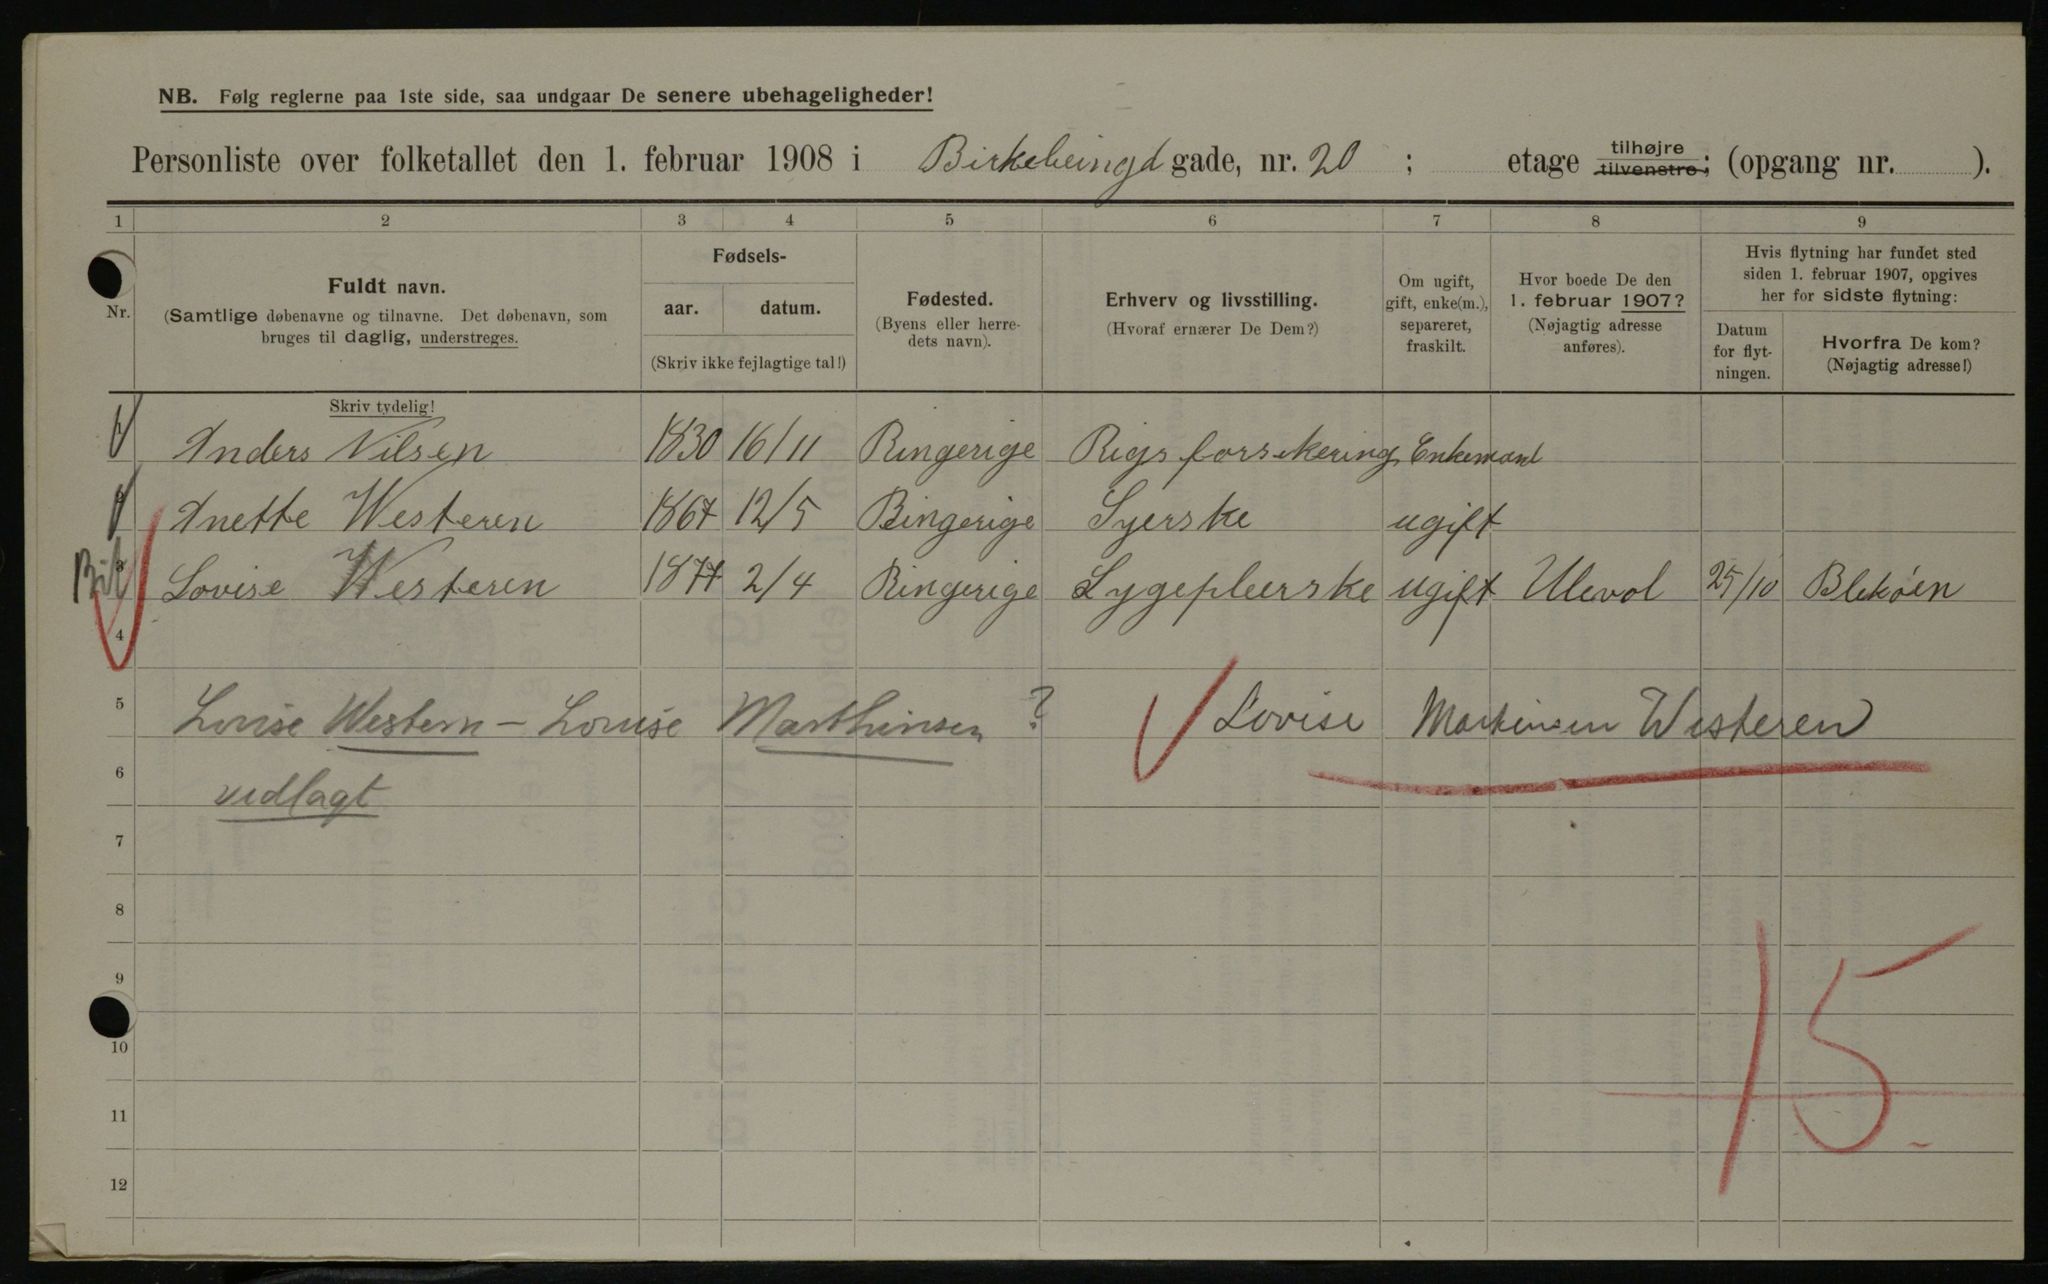 NB. Følg reglerne paa 1ste side, saa undgaar De senere ubehageligheder!
Personliste over folketallet den 1. februar 1908 i Birkebeingd gade, nr. 20 ; etage tilhøjre tilvenstre; (opgang nr. ).
1 2 3 4 5 6 7 8 9
Nr.
Fuldt navn.
(Samtlige døbenavne og tilnavne. Det døbenavn, som
bruges til daglig, understreges.
Fødsels-
aar. datum.
(Skriv ikke fejlagtige tal!)
Fødested.
(Byens eller herre-
dets navn).
Erhverv og livsstilling.
(Hvoraf ernærer De Dem?)
Om ugift,
gift, enke(m.),
separeret,
fraskilt.
Hvor boede De den
1. februar 1907?
(Nøjagtig adresse
anføres).
Hvis flytning har fundet sted
siden 1. februar 1907, opgives
her for sidste flytning:
Datum
for flyt-
ningen.
Hvorfra De kom?
(Nøjagtig adresse!)
Skriv tydelig!
1 Anders Nilsen 1830 16/11 Ringerige Rigsforsikering Enkemand
2 Anette Westeren 1867 12/5 Ringerige Syerske ugift
3 Lovise Westeren 1877 2/4 Ringerige Sygepleerske ugift Ulevol 25/10 Blekøen
4
5 Louise Western – Louise Marthinsen ? Lovise Martinsen Westeren
6 vedlagt
7
8
9
10
11
12
15